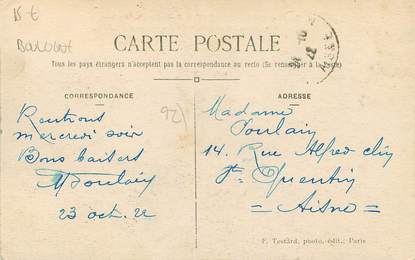 15 €
CARTE POSTALE
Tous les pays étrangers n'acceptent pas la correspondance au recto (Se renseigner à la Poste)
CORRESPONDANCE
Rentrons
mercredi soir
Bons baisers
Poulain
23 oct. 22
92/
ADRESSE
Madame
Poulain
14. Rue Alfred
St Quentin
= Aisne =
F. Testard, photo, édit., Paris